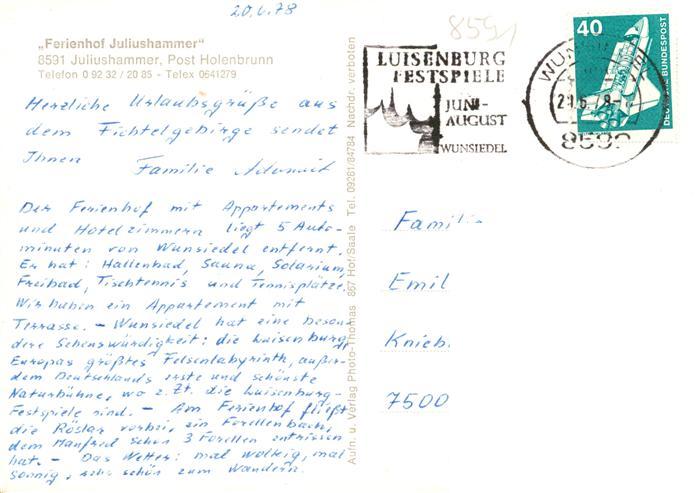 20.6.78
8591
„Ferienhof Juliushammer“
8591 Juliushammer, Post Holenbrunn
Telefon 0 92 32 / 20 85 - Telex 0641279
Herzliche Urlaubsgrüße aus
dem Fichtelgebirge sendet
Ihnen Familie
Der Ferienhof mit Appartements
und Hotelzimmern liegt 5 Auto-
minuten von Wunsiedel entfernt.
Er hat: Hallenbad, Sauna, Solarium,
Freibad, Tischtennis und Tennisplätze.
Wir haben ein Appartement mit
Terrasse. – Wunsiedel hat eine beson-
dere Sehenswürdigkeit: die Luisenburg,
Europas größtes Felsenlabyrinth, außer-
dem Deutschlands erste und schönste
Naturbühne, wo z.Zt. die Luisenburg-
Festspiele sind. – Am Ferienhof fließt
die Röslau vorbei, ein Forellenbach,
dem Manfred schon 3 Forellen entrissen
hat. – Das Wetter: mal wolkig, mal
sonnig, sehr schön zum Wandern.
Aufn. u. Verlag Photo-Thomas 867 Hof/Saale Tel. 09281/84784 Nachdr. verboten
LUISENBURG
FESTSPIELE
JUNI-
AUGUST
WUNSIEDEL
40
DEUTSCHE BUNDESPOST
Familie
Emil
Knieb.
7500